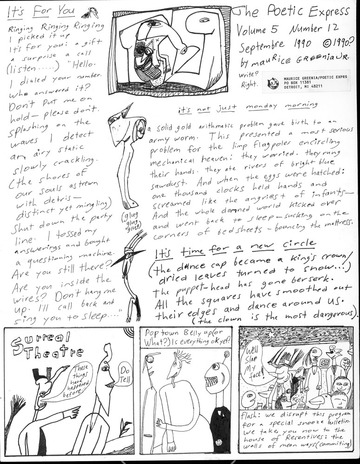 It's For You
Ringing Ringing Ringing
I picked it up
It's for you: a gift
a surprise a call
(listen....) "Hello.
I dialed your number
who answered it?
Don't put me on
hold - please don't.
splashing on the
waves I detect
an airy static
slowly crackling.
(the shores of
our souls astrewn
with debris -
distinct yet mingling)
Shut down the party
line - I tossed my
answerings and bought
a questioning machine.
Are you still there?
Are you inside the
wires? Don't hang me
up. I'll call back and
sing you to sleep....."
The Poetic Express
Volume 5 Number 12
Septembre 1990 ©1990?
by mauRice GReenia, JR.
write
Right.
MAURICE GREENIA/POETIC EXPRES
PO BOX 11301
DETROIT, MI 48211
it's not just monday morning
a solid gold arithmatic problem gave birth to an
army worm. This presented a most serious
problem for the limp flagpoler encircling
mechanical heaven: they worried: they rang
their hands: they ate rivers of bright blue
sawdust. And when the eggs were hatched:
one thousand clocks held hands and
screamed like the angriest of infants-
And the whole damned world kicked over
and went back to sleep - sucking on the
corners of bedsheets - bouncing the mattress.
(glug
glug
glue)
It's time for a new circle
(the dance cap became a king's crown/
dried leaves turned to snow...)
The puppet-head has gone berserk.
All the squares have smoothed out
their edges and dance around us.
(the clown is the most dangerous)
Surreal
Theatre
These
things
have
happened
before
Do
Tell
Pop town Belly up (or
What?) Is everything okyet?
Well
Cut
My
Face!
Flash: we disrupt this program
for a special snooze bulletin
we take you now to the
house of Recentives: the
wells of mean ways (commiting)